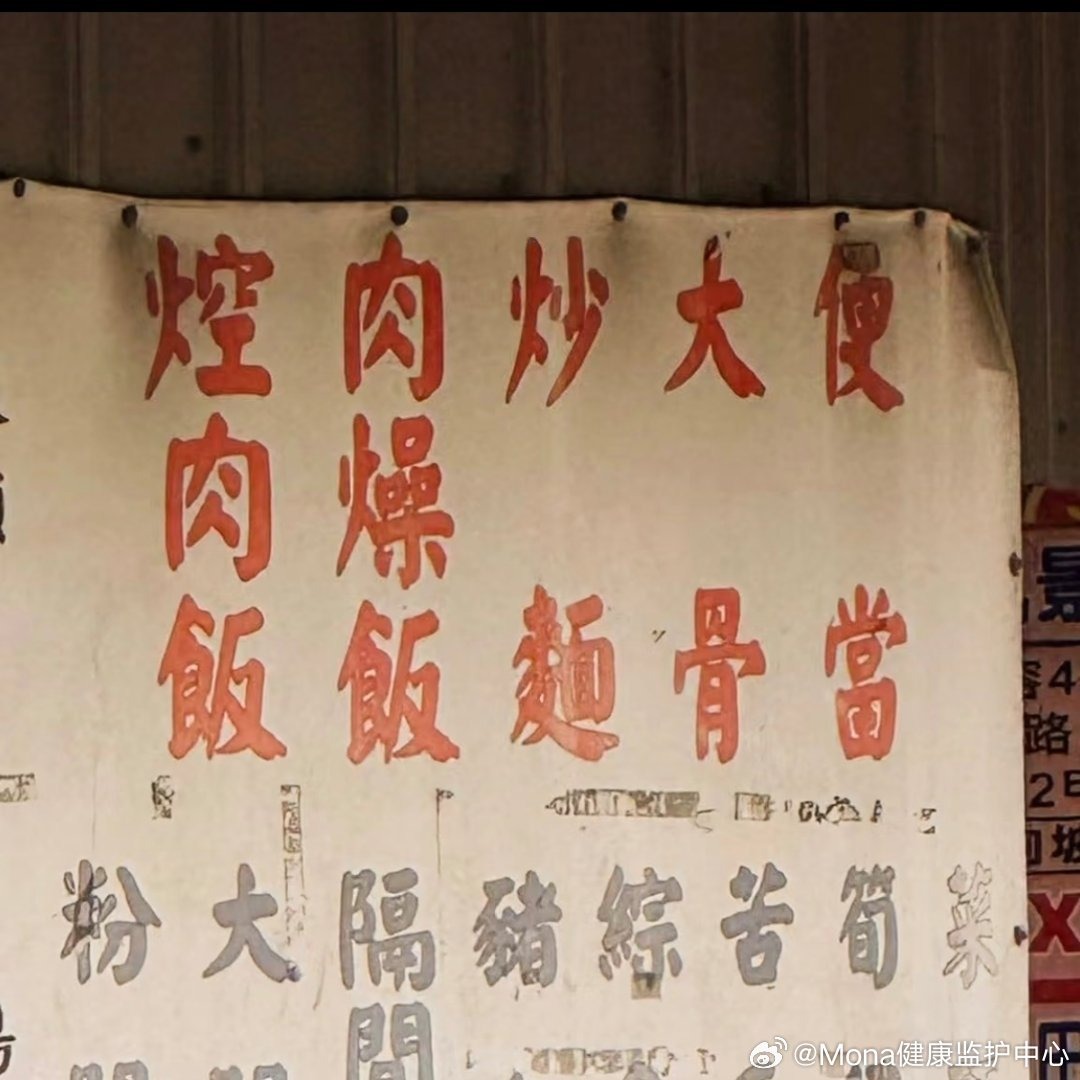 便當
大骨
炒麵
肉燥飯
焢肉飯
菜
筍
苦
綜
豬
隔間
大
粉
路
X
@Mona健康监护中心